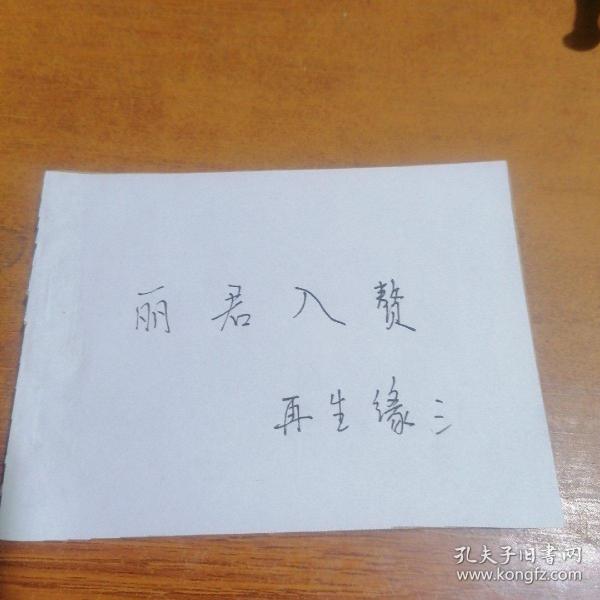 丽君入赘
再生缘三
孔夫子旧书网
www.kongfz.com